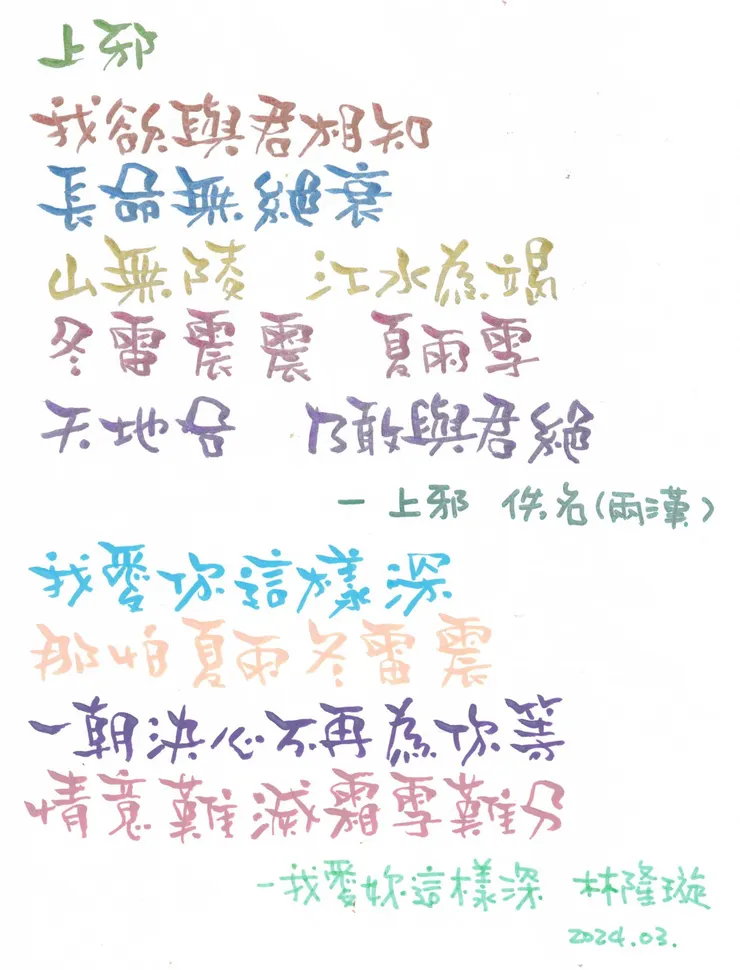 上邪
我欲與君相知
長命無絕衰
山無陵　江水為竭
冬雷震震　夏雨雪
天地合　乃敢與君絕
－上邪　佚名(兩漢)
我愛你這樣深
那怕夏雨冬雷震
一朝決心不再為你等
情意難滅霜雪難分
－我愛妳這樣深　林隆璇
2024.03.